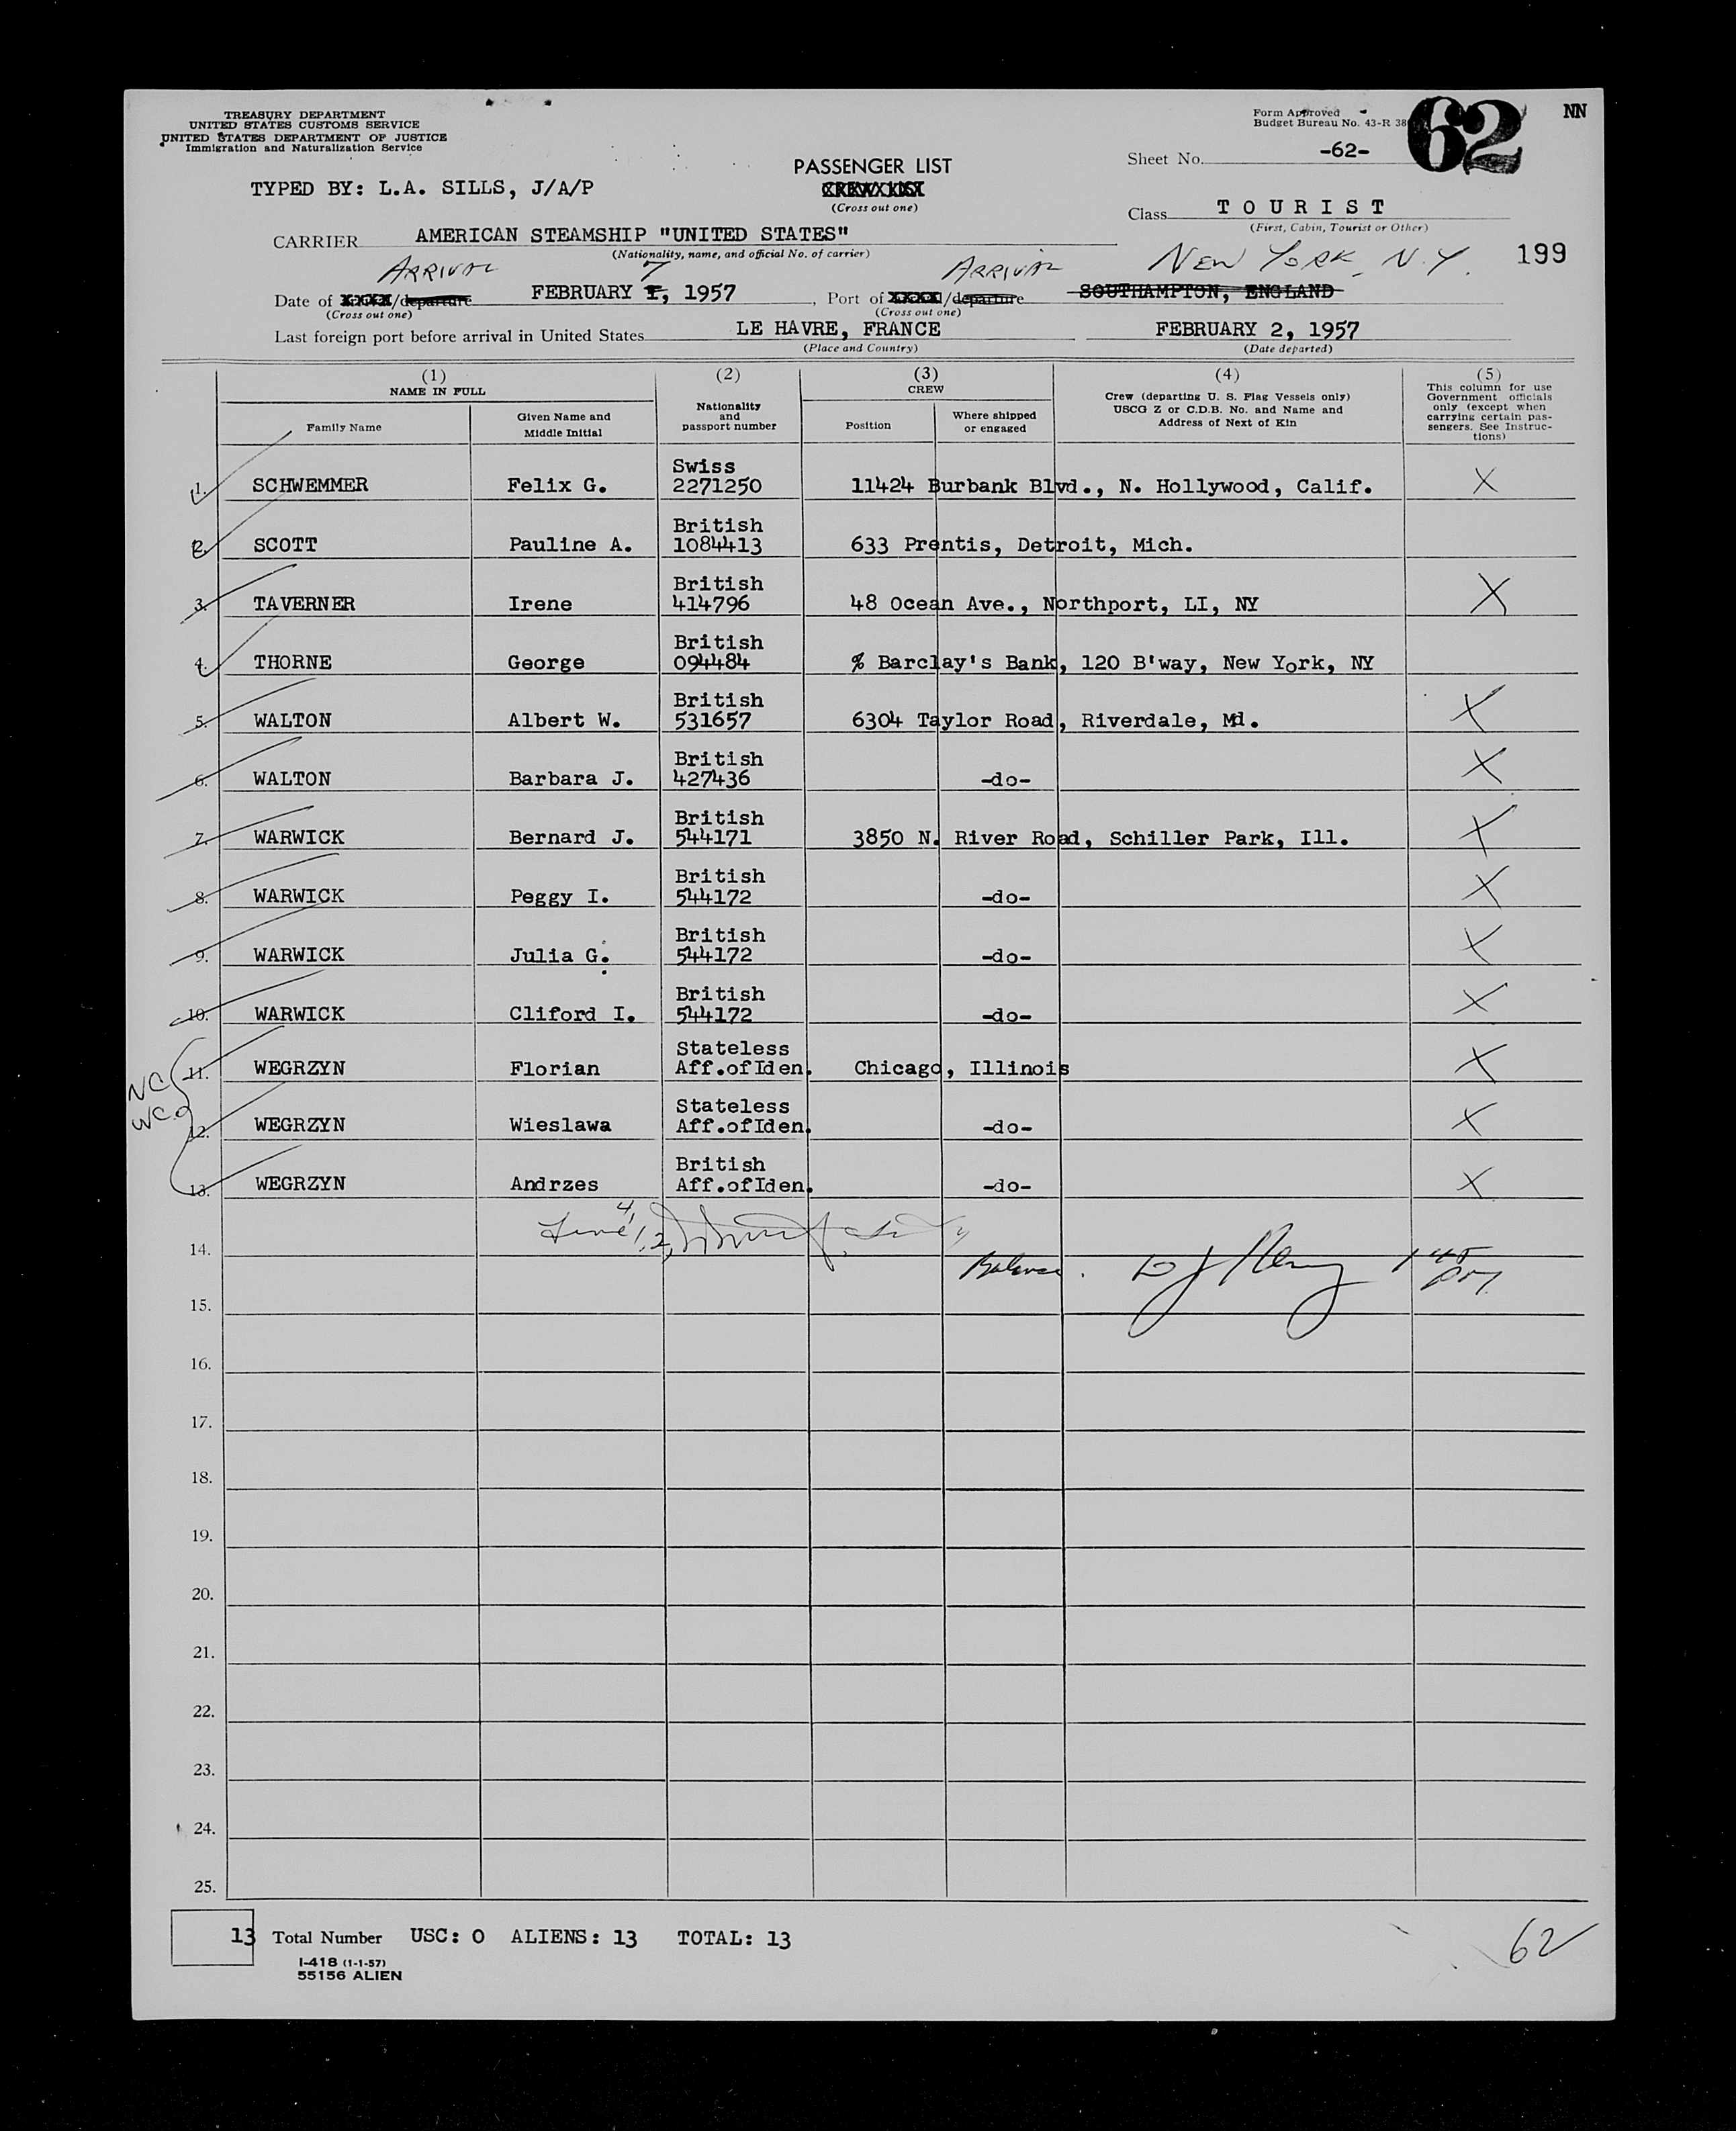 TREASURY DEPARTMENT
UNITED STATES CUSTOMS SERVICE
UNITED STATES DEPARTMENT OF JUSTICE
Immigration and Naturalization Service
Form Approved
Budget Bureau No. 43-R 38
62
NN
Sheet No. -62-
PASSENGER LIST
CREW LIST
(Cross out one)
TYPED BY: L.A. SILLS, J/A/P
Class TOURIST
(First, Cabin, Tourist or Other)
CARRIER AMERICAN STEAMSHIP "UNITED STATES"
(Nationality, name, and official No. of carrier)
ARRIVAL 7 ARRIVAL NEW YORK, N.Y. 199
Date of arrival/departure FEBRUARY 1, 1957, Port of arrival/departure SOUTHAMPTON, ENGLAND
(Cross out one) (Cross out one)
Last foreign port before arrival in United States LE HAVRE, FRANCE FEBRUARY 2, 1957
(Place and Country) (Date departed)
(1) NAME IN FULL
Family Name
Given Name and Middle Initial
(2) Nationality and passport number
(3) CREW
Position
Where shipped or engaged
(4) Crew (departing U. S. Flag Vessels only) USCG Z or C.D.B. No. and Name and Address of Next of Kin
(5) This column for use Government officials only (except when carrying certain passengers. See Instructions)
1. SCHWEMMER Felix G. Swiss 2271250 11424 Burbank Blvd., N. Hollywood, Calif. X
2. SCOTT Pauline A. British 1084413 633 Prentis, Detroit, Mich.
3. TAVERNER Irene British 414796 48 Ocean Ave., Northport, LI, NY X
4. THORNE George British 094484 % Barclay's Bank, 120 B'way, New York, NY
5. WALTON Albert W. British 531657 6304 Taylor Road, Riverdale, Md. X
6. WALTON Barbara J. British 427436 -do- X
7. WARWICK Bernard J. British 544171 3850 N. River Road, Schiller Park, Ill. X
8. WARWICK Peggy I. British 544172 -do- X
9. WARWICK Julia G. British 544172 -do- X
10. WARWICK Cliford I. British 544172 -do- X
NC
WC
11. WEGRZYN Florian Stateless Aff.ofIden. Chicago, Illinois X
12. WEGRZYN Wieslawa Stateless Aff.ofIden. -do- X
13. WEGRZYN Andrzes British Aff.ofIden. -do- X
14.
Balance
15.
16.
17.
18.
19.
20.
21.
22.
23.
24.
25.
13 Total Number USC: 0 ALIENS: 13 TOTAL: 13
I-418 (1-1-57)
55156 ALIEN
62